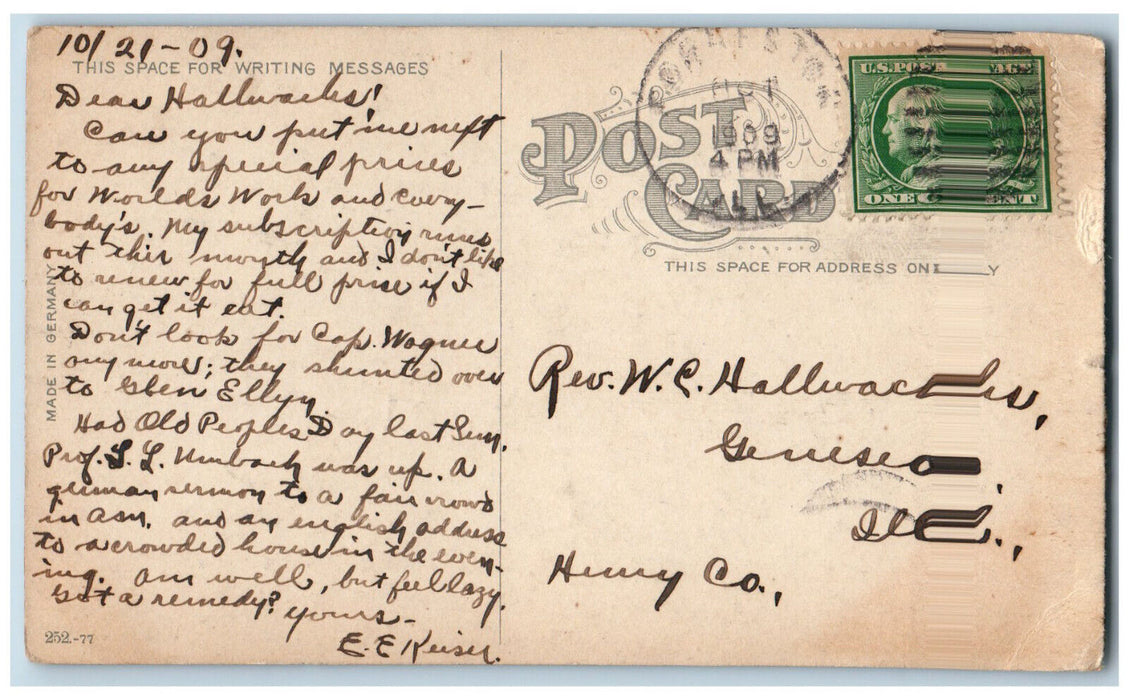 10/21-09.
THIS SPACE FOR WRITING MESSAGES
Dear Hallwachs!
Can you put me next
to any special prices
for Worlds Work and Every-
body's. My subscription runs
out this month and I don't like
to renew for full price if I
can get it cut.
Don't look for Cap. Wagner
any more; they shunted over
to Glen Ellyn.
Had Old Peoples Day last Sun.
Prof. S. L. Umbach was up. A
german sermon to a fair crowd
in a.m. and an english address
to a crowded house in the even-
ing. Am well, but feel lazy.
Got a remedy? Yours-
E. E. Keiser.
252.-77
MADE IN GERMANY
POST CARD
OCT
1909
4 PM
ILL.
U.S. POSTAGE
ONE CENT
THIS SPACE FOR ADDRESS ONLY
Rev. W. C. Hallwachs,
Geneseo,
Ill.,
Henry Co.,